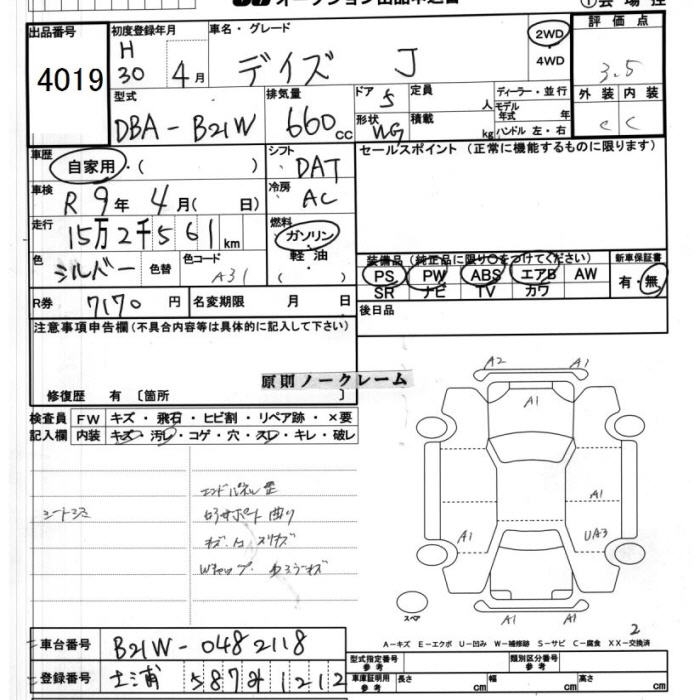 出品番号 初度登録年月 車名・グレード 評価点
4019 H 30 4月 デイズ J 2WD 4WD 3.5
型式 排気量 ドア 定員 人 ディーラー・並行 外装 内装
DBA-B21W 660cc 5 形状 積載 kg モデル年式 年 ハンドル 左・右 C C
車歴 自家用・( ) シフト DAT セールスポイント(正常に機能するものに限ります)
車検 R 9年 4月( 日) 冷房 AC
走行 15万2千561km 燃料 ガソリン・軽油( )
色 シルバー 色替 色コード A31
装備品(純正品に限り○をつけてください) 新車保証書
PS PW ABS エアB AW 有・無
SR ナビ TV カワ
R券 7170円 名変期限 月 日 後日品
注意事項申告欄(不具合内容等は具体的に記入して下さい)
原則ノークレーム
修復歴 有 〔箇所
検査員記入欄 FW キズ・飛石・ヒビ割・リペア跡・×要
内装 キズ・汚レ・コゲ・穴・スレ・キレ・破レ
A2 A1
A1
A1
UA3
A1 A1
スペア
エンドパネル歪
シートシミ
2
A-キズ E-エクボ U-凹み W-補修跡 S-サビ C-腐食 XX-交換済
車台番号 B21W-0482118 型式指定番号 参考 類別区分番号 参考
登録番号 土浦 587 1212 車庫証明用 参考 長さ cm 幅 cm 高さ cm